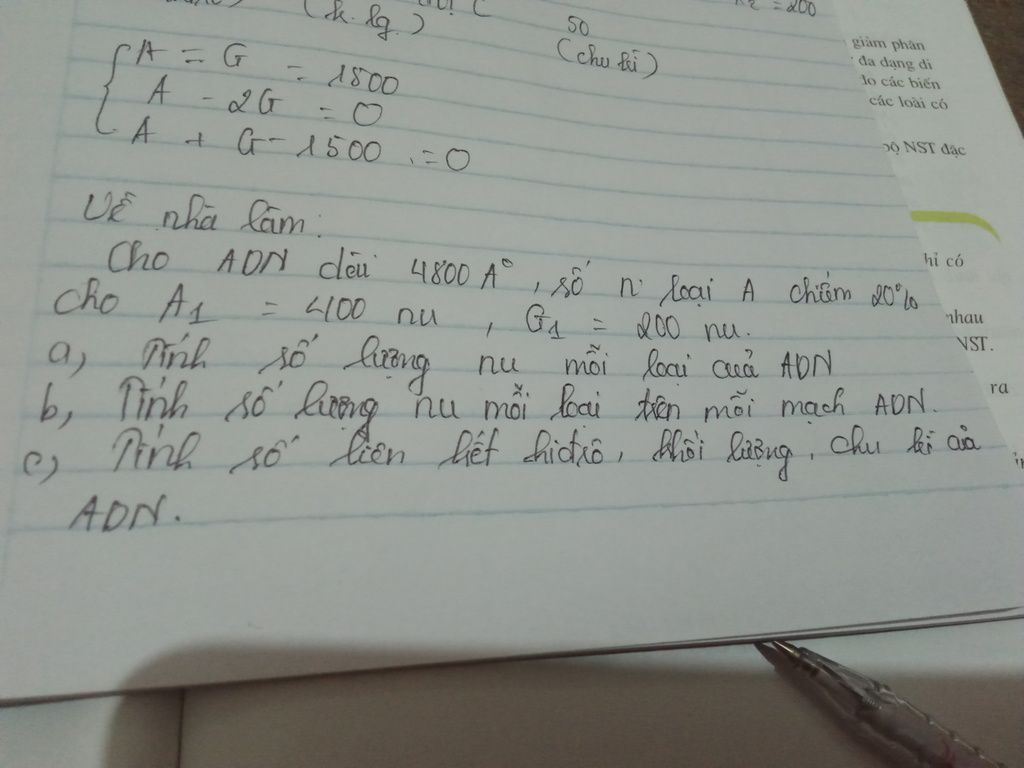 (k. lg.)
50
(chu kì)
= 200
A = G = 1500
A - 2G = 0
A + G - 1500 = 0
Về nhà làm:
Cho ADN dài 4800 A°, số n loại A chiếm 20%
cho A1 = 400 nu, G1 = 200 nu.
a, Tính số lượng nu mỗi loại của ADN
b, Tính số lượng nu mỗi loại trên mỗi mạch ADN.
c, Tính số liên kết hiđrô, khối lượng, chu kì của
ADN.
giảm phân
đa dạng di
do các biến
các loài có
bộ NST đặc
hỉ có
nhau
NST.
ra